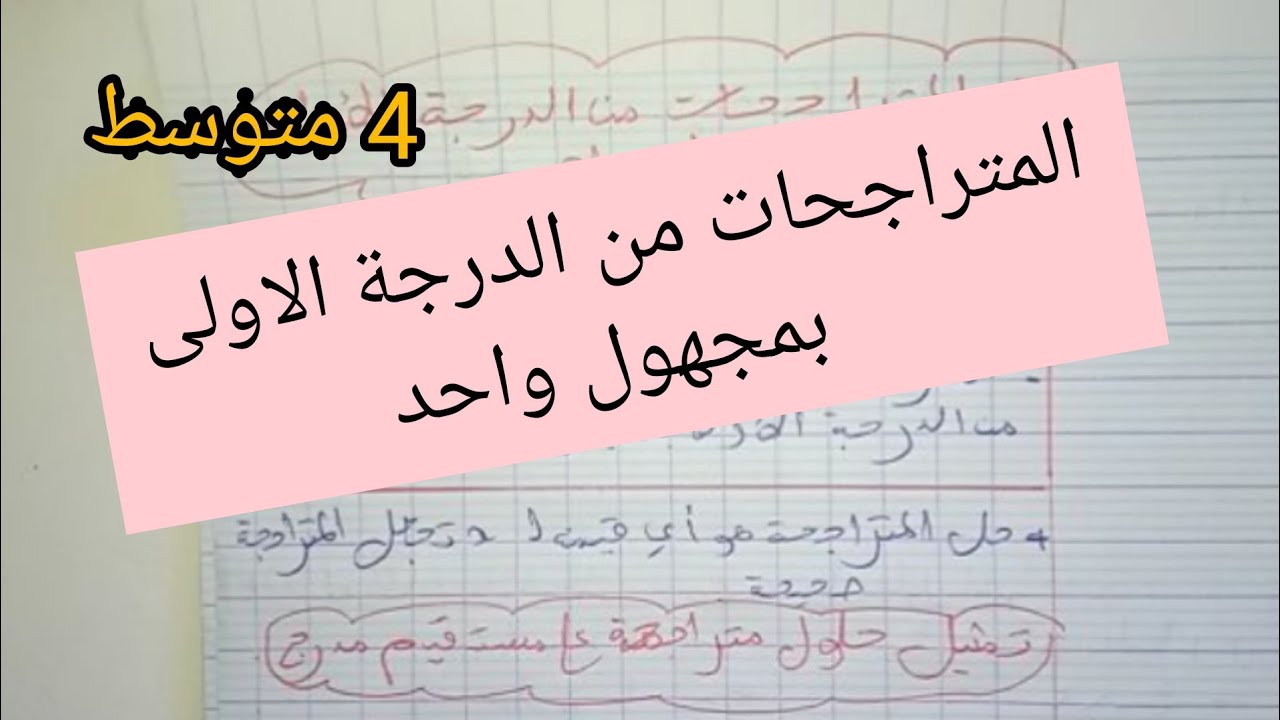 4 متوسط
من الدرجة
المتراجحات من الدرجة الاولى
بمجهول واحد
من الدرجة
حل المتراجحة هو أي قيمة لـ x تجعل المتراجحة
صحيحة
تمثيل حلول متراجحة ع مستقيم مدرج